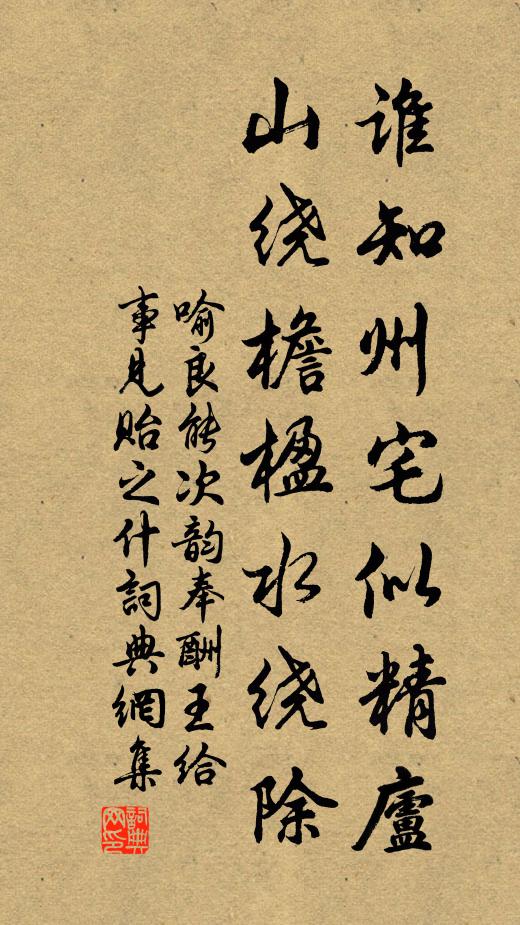 谁知州宅似精廬
山绕檐楹水绕除
喻良能次韵奉酬王给
事见贻之什詞典網集
詞典
网印